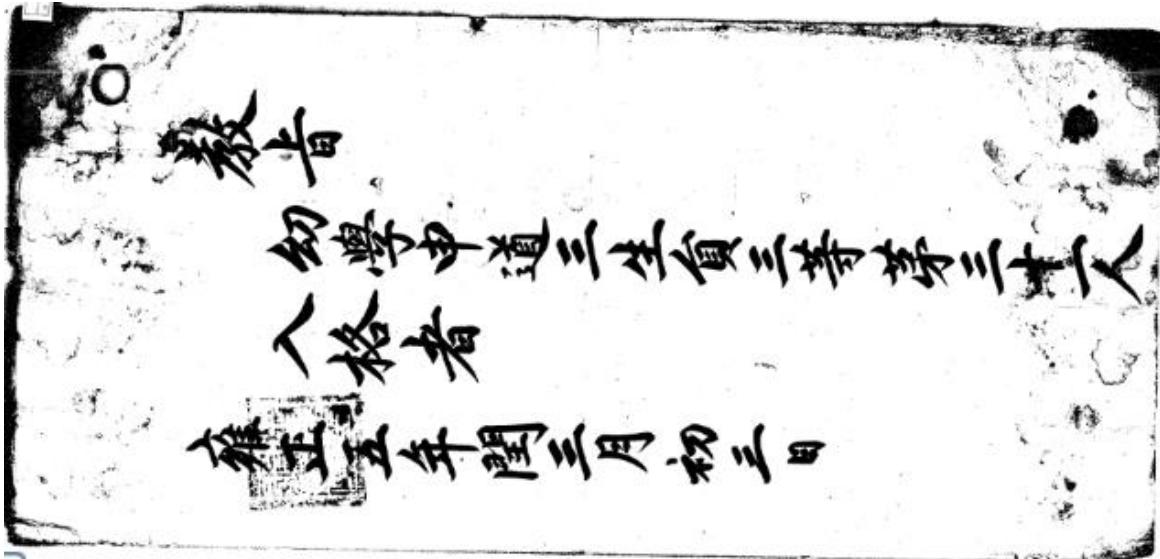 敎旨
幼學申道三生員三等第三十一人
入格者
雍正五年閏三月初三日